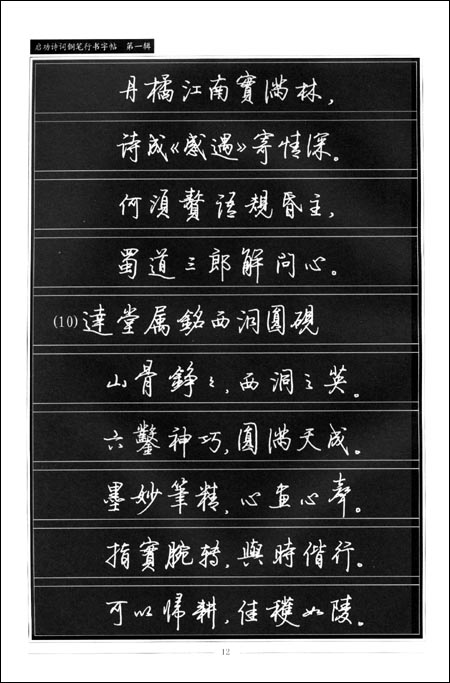 启功诗词钢笔行书字帖 第一辑
丹橘江南實满林，
诗成《感遇》寄情深。
何須贅语規昏主，
蜀道三郎解问心。
(10)達堂属銘西洞圓硯
山骨錚々，西洞之英。
六鑿神巧，圓满天成。
墨妙筆精，心画心聲。
指實腕转，與時偕行。
可以帰耕，佳穫如陵。
12